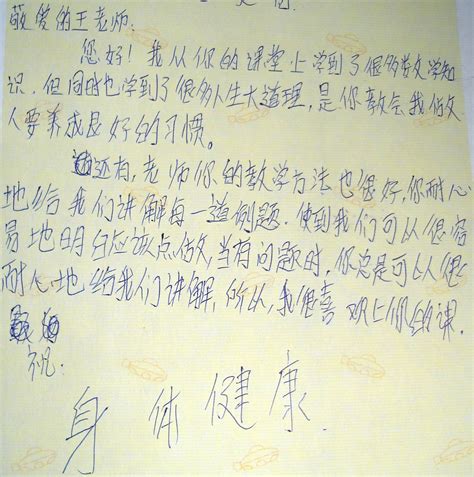 敬爱的王老师.
您好！我从你的课堂上学到了很多数学知
识.但同时也学到了很多人生大道理,是你教会我做
人要养成良好的习惯。
还有,老师你的教学方法也很好,你耐心
地给我们讲解每一道例题.使到我们可以很容
易地明白应该点做,当有问题时,你总是可以很
耐心地给我们讲解,所以,我很喜欢上你的课.
祝:
身体健康.